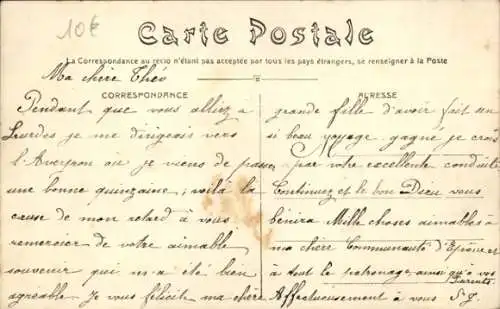 10€
Carte Postale
La Correspondance au recto n'étant pas acceptée par tous les pays étrangers, se renseigner à la Poste
Ma chère Théo
CORRESPONDANCE
Pendant que vous alliez a
Lourdes je me dirigeais vers
l'Aveyron où je viens de passer
une bonne quinzaine, voilà la
cause de mon retard à vous
remercier de votre aimable
souvenir qui m'a été bien
agréable. Je vous félicite ma chère
ADRESSE
grande fille d'avoir fait un
si beau voyage gagné je crois
par votre excellente conduite
Continuez et le bon Dieu vous
bénira Mille choses aimables a
ma chère Communauté d'
à tout le patronage ainsi qu'a vos
Parents
Affectueusement à vous